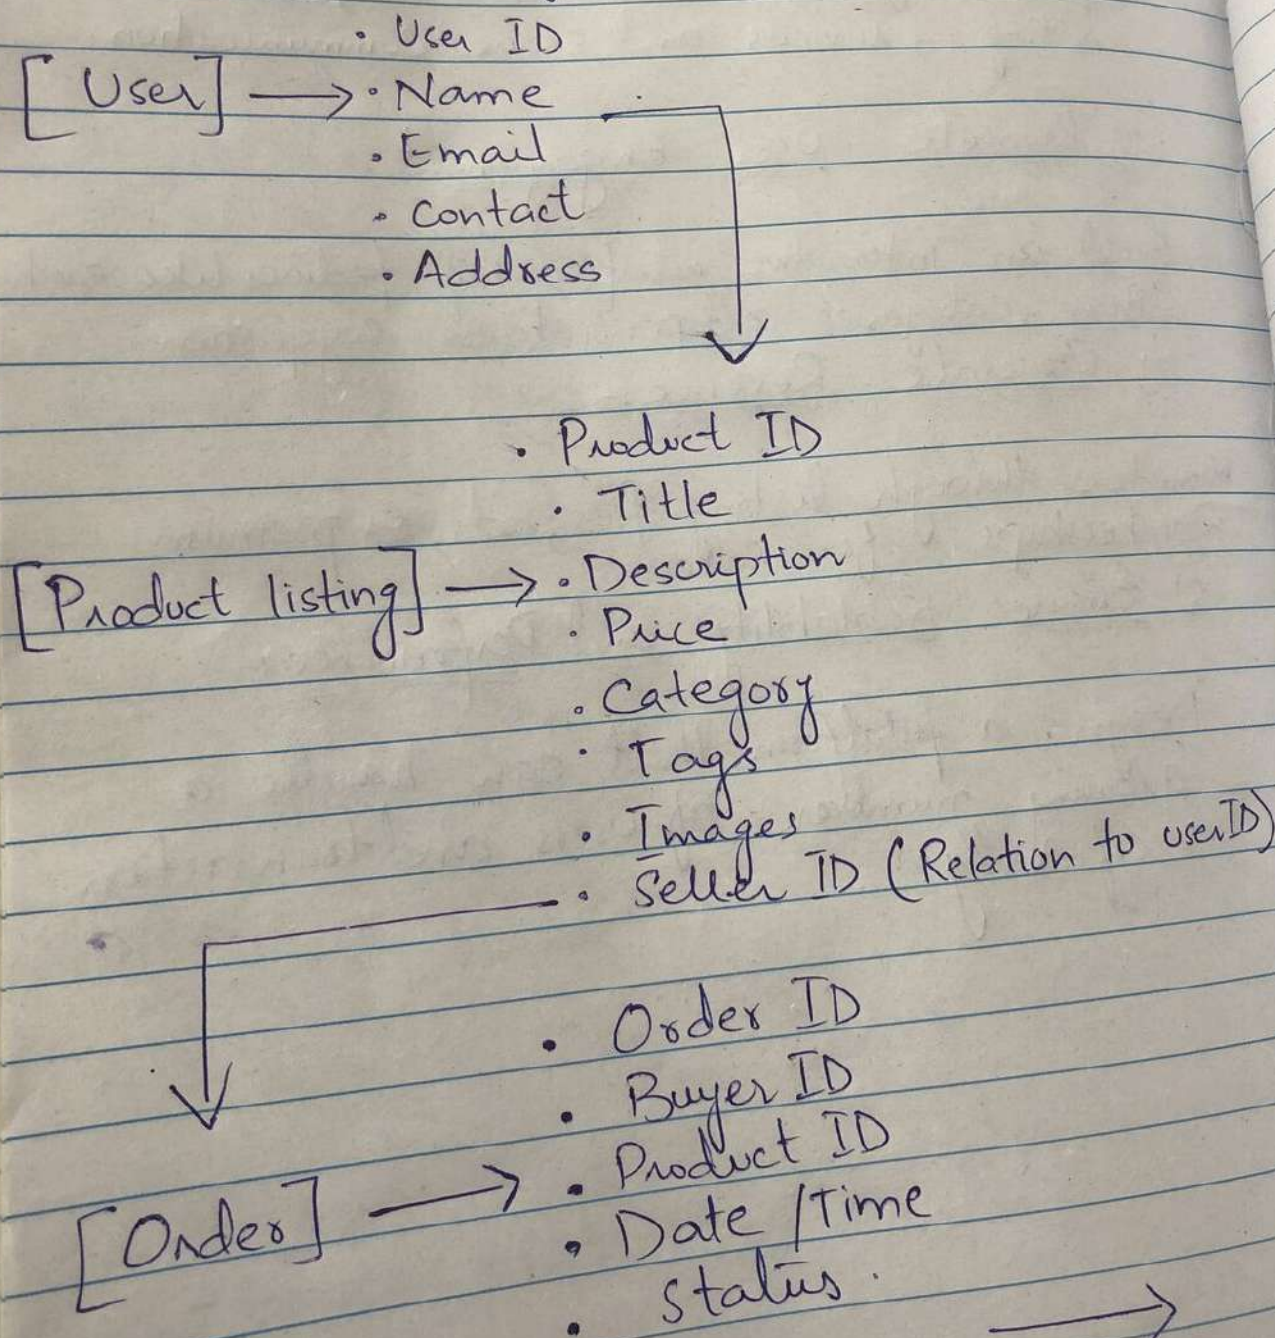 • User ID
[User] → • Name
• Email
• Contact
• Address
• Product ID
• Title
[Product listing] → • Description
• Price
• Category
• Tags
• Images
• Seller ID (Relation to userID)
• Order ID
• Buyer ID
• Product ID
[Order] → • Date /Time
• Status